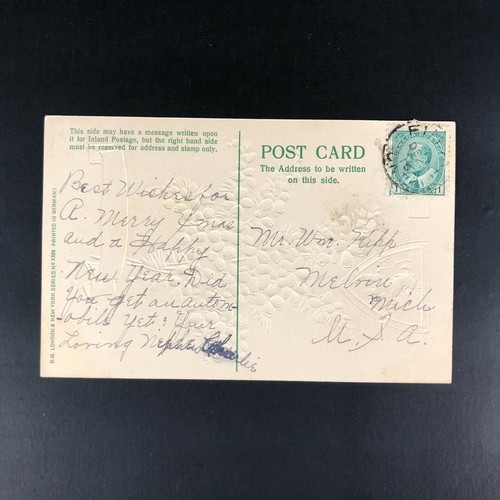 This side may have a message written upon
it for Inland Postage, but the right hand side
must be reserved for address and stamp only.
POST CARD
The Address to be written
on this side.
Best Wishes for
A. Merry Xmas
and a Happy
New Year. Did
You get an autom
obile Yet? Your
Loving Nephew Charlie
Mr. Wm. Kipp
Melvin
Mich
U. S. A.
B.B. LONDON & NEW YORK SERIES No PRINTED IN GERMANY
1
1